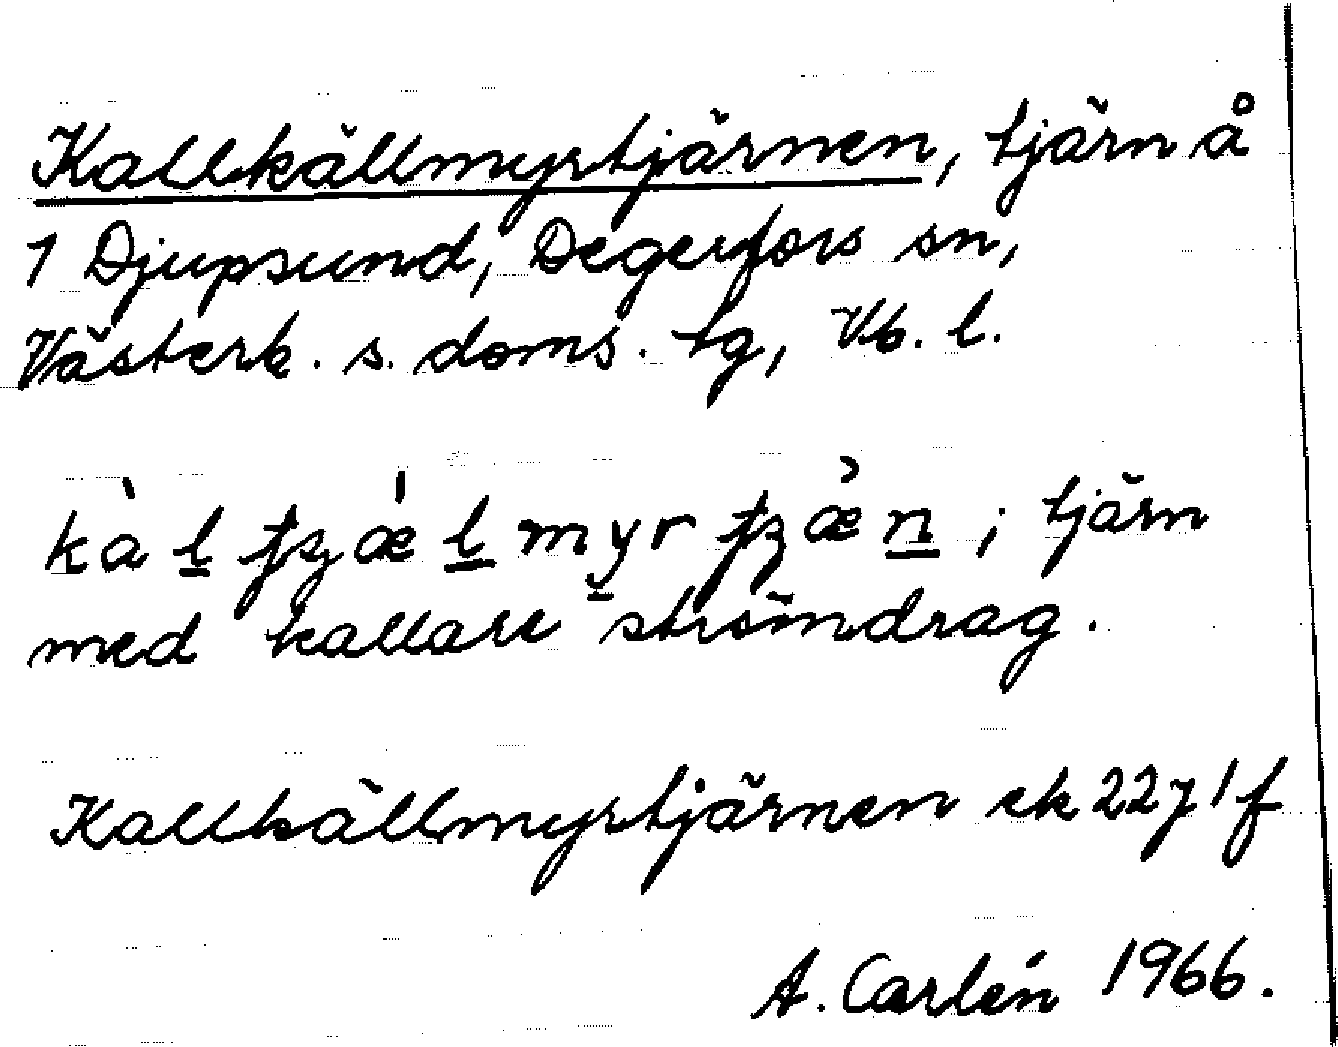 Kallkällmyrtjärnen, tjärn å
1 Djupsund, Degerfors sn,
Västerb. s. doms. tg, Vb. l.
kàl̲ ʈʂǽl̲myrʈʂæ̀n̲ ; tjärn
med kallare strömdrag.
Kallkällmyrtjärnen ek 22 7 1 f
A. Carlén 1966.